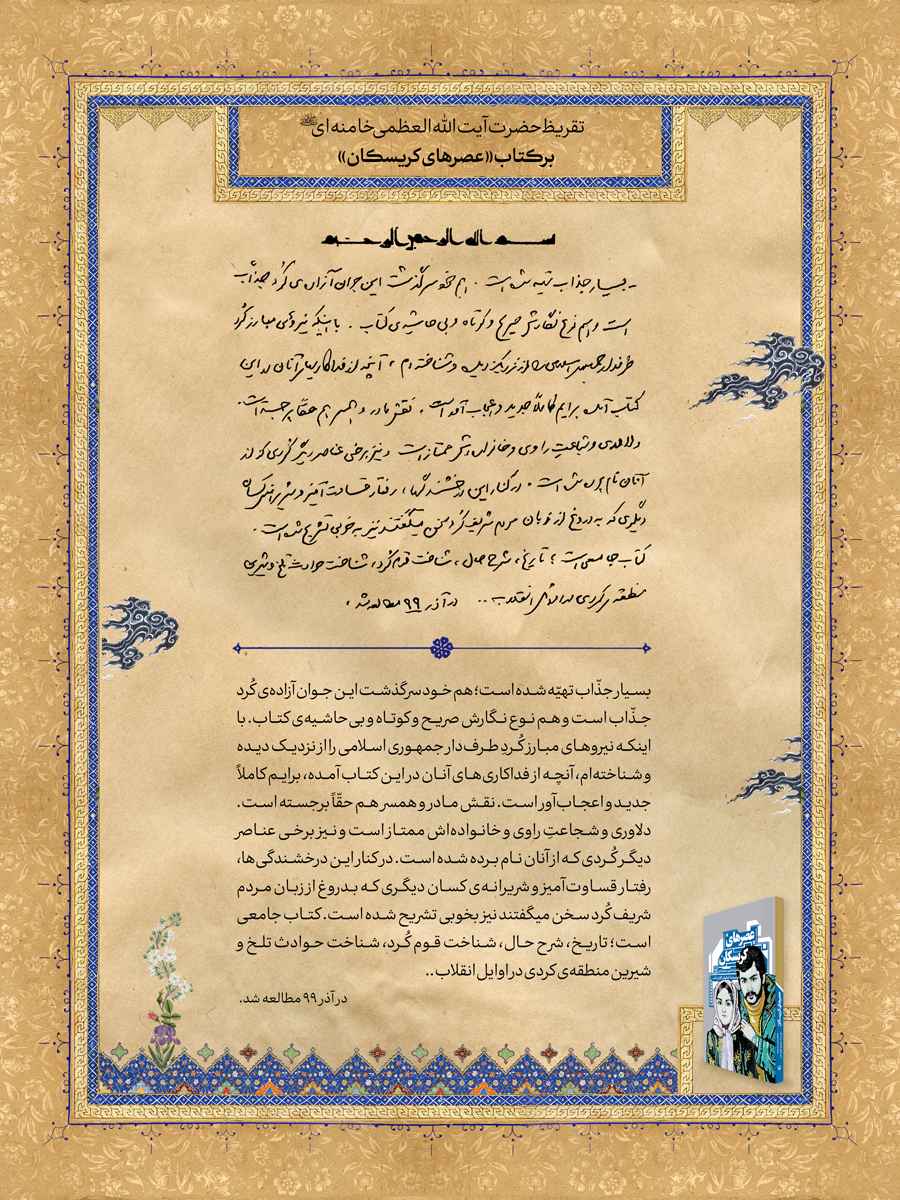 تقریظ حضرت آیت الله العظمی خامنه ای
بر کتاب «عصرهای کریسکان»
بسم الله الرحمن الرحیم
ـ بسیار جذاب تهیه شده است . هم خود سرگذشت این جوان آزاده‌ی کُرد جذّاب
است و هم نوع نگارش صریح و کوتاه و بی حاشیه‌ی کتاب . با اینکه نیروهای مبارز کُرد
طرفدار جمهوری اسلامی را از نزدیک دیده و شناخته‌ام ، آنچه از فداکاریهای آنان در این
کتاب آمده برایم کاملاً جدید و اعجاب آور است . نقش مادر و همسر هم حقّاً برجسته است.
دلاوری و شجاعتِ راوی و خانواده‌اش ممتاز است و نیز برخی عناصر دیگر کُردی که از
آنان نام برده شده است . در کنار این درخشندگیها ، رفتار قساوت آمیز و شریرانه‌ی کسان
دیگری که به دروغ از زبان مردم شریف کُرد سخن میگفتند نیز به خوبی تشریح شده است .
کتاب جامعی است ؛ تاریخ ، شرح حال ، شناخت قوم کُرد ، شناخت حوادث تلخ و شیرین
منطقه‌ی کردی در اوایل انقلاب .. در آذر ۹۹ مطالعه شد .
بسیار جذّاب تهیّه شده است؛ هم خود سرگذشت این جوان آزاده‌ی کُرد
جذّاب است و هم نوع نگارش صریح و کوتاه و بی حاشیه‌ی کتاب. با
اینکه نیروهای مبارز کُردِ طرف‌دار جمهوری اسلامی را از نزدیک دیده
و شناخته‌ام، آنچه از فداکاری های آنان در این کتاب آمده، برایم کاملاً
جدید و اعجاب‌آور است. نقش مادر و همسر هم حقّاً برجسته است.
دلاوری و شجاعتِ راوی و خانواده‌اش ممتاز است و نیز برخی عناصر
دیگر کُردی که از آنان نام برده شده است. در کنار این درخشندگی‌ها،
رفتار قساوت‌آمیز و شریرانه‌ی کسان دیگری که بدروغ از زبان مردم
شریف کُرد سخن میگفتند نیز بخوبی تشریح شده است. کتاب جامعی
است؛ تاریخ، شرح حال، شناخت قوم کُرد، شناخت حوادث تلخ و
شیرین منطقه‌ی کردی در اوایل انقلاب..
در آذر ۹۹ مطالعه شد.
عصرهای
کریسکان